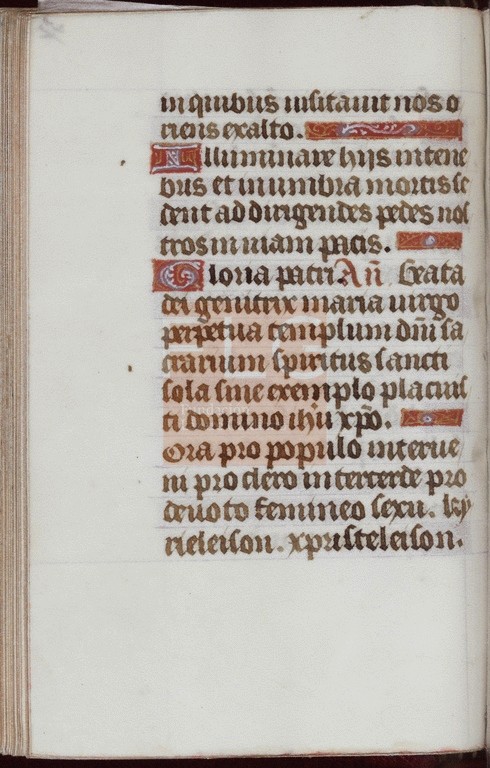 in quibus uisitauit nos o
riens ex alto.
Illuminare hijs in tene
bris et in umbra mortis se
dent ad dirigendes pedes nos
tros in uiam pacis.
Gloria patri. An̄ Beata
dei genitrix maria uirgo
perpetua templum dn̄i sa
crarium spiritus sancti
sola sine exemplo placuis
ti domino ihū xp̄o.
Ora pro populo interue
ni pro clero intercede pro
deuoto femineo sexu. ky
rieleison. xpristeleison.